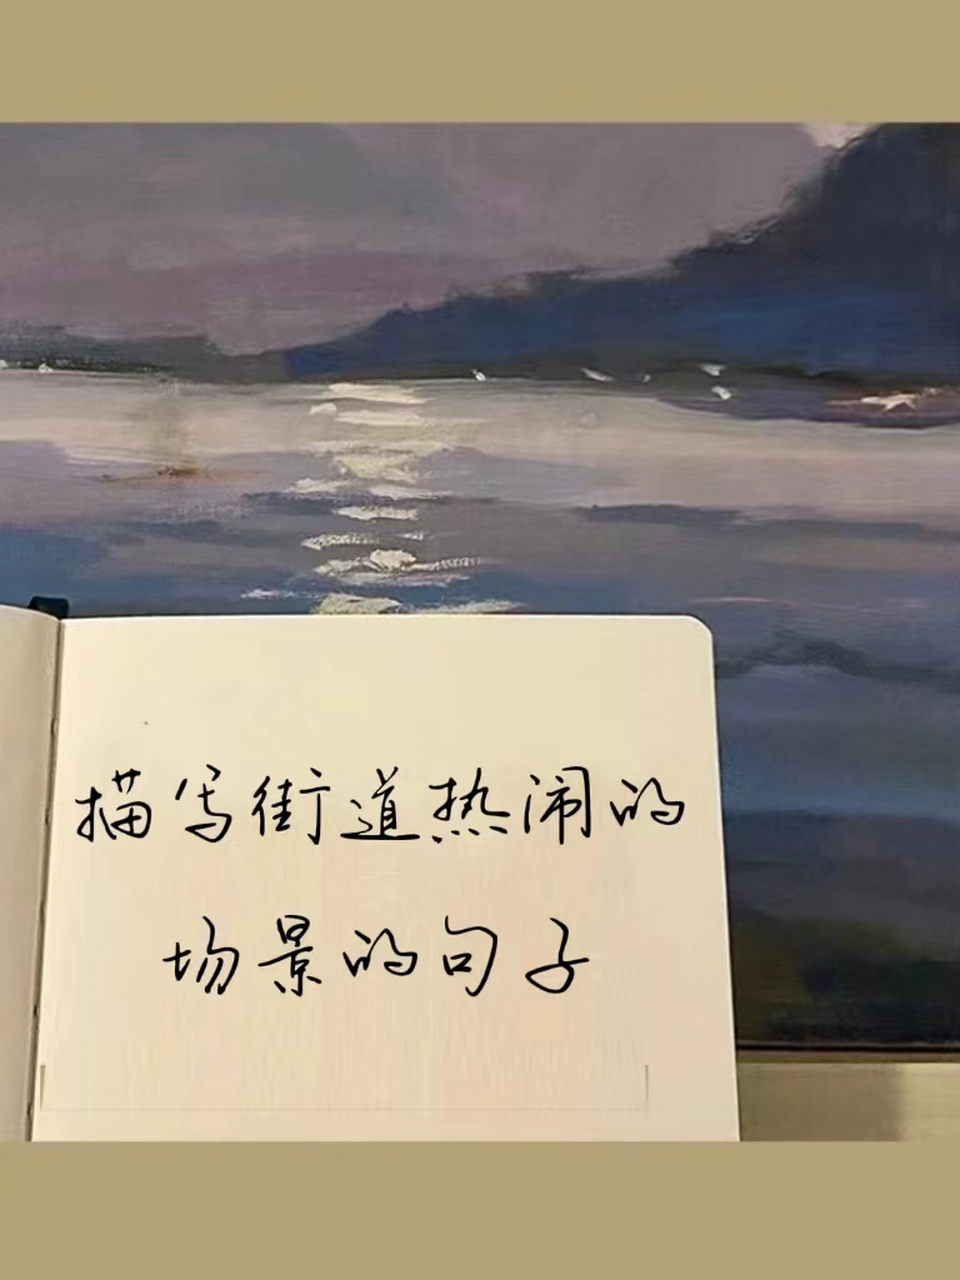 描写街道热闹的
场景的句子